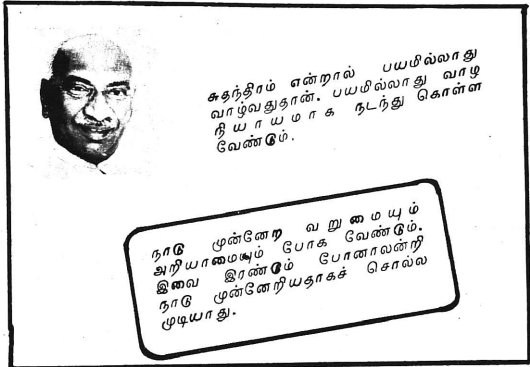 சுதந்திரம் என்றால் பயமில்லாது
வாழ்வதுதான். பயமில்லாது வாழ
நியாயமாக நடந்து கொள்ள
வேண்டும்.
நாடு முன்னேற வறுமையும்
அறியாமையும் போக வேண்டும்.
இவை இரண்டும் போனாலன்றி
நாடு முன்னேறியதாகச் சொல்ல
முடியாது.